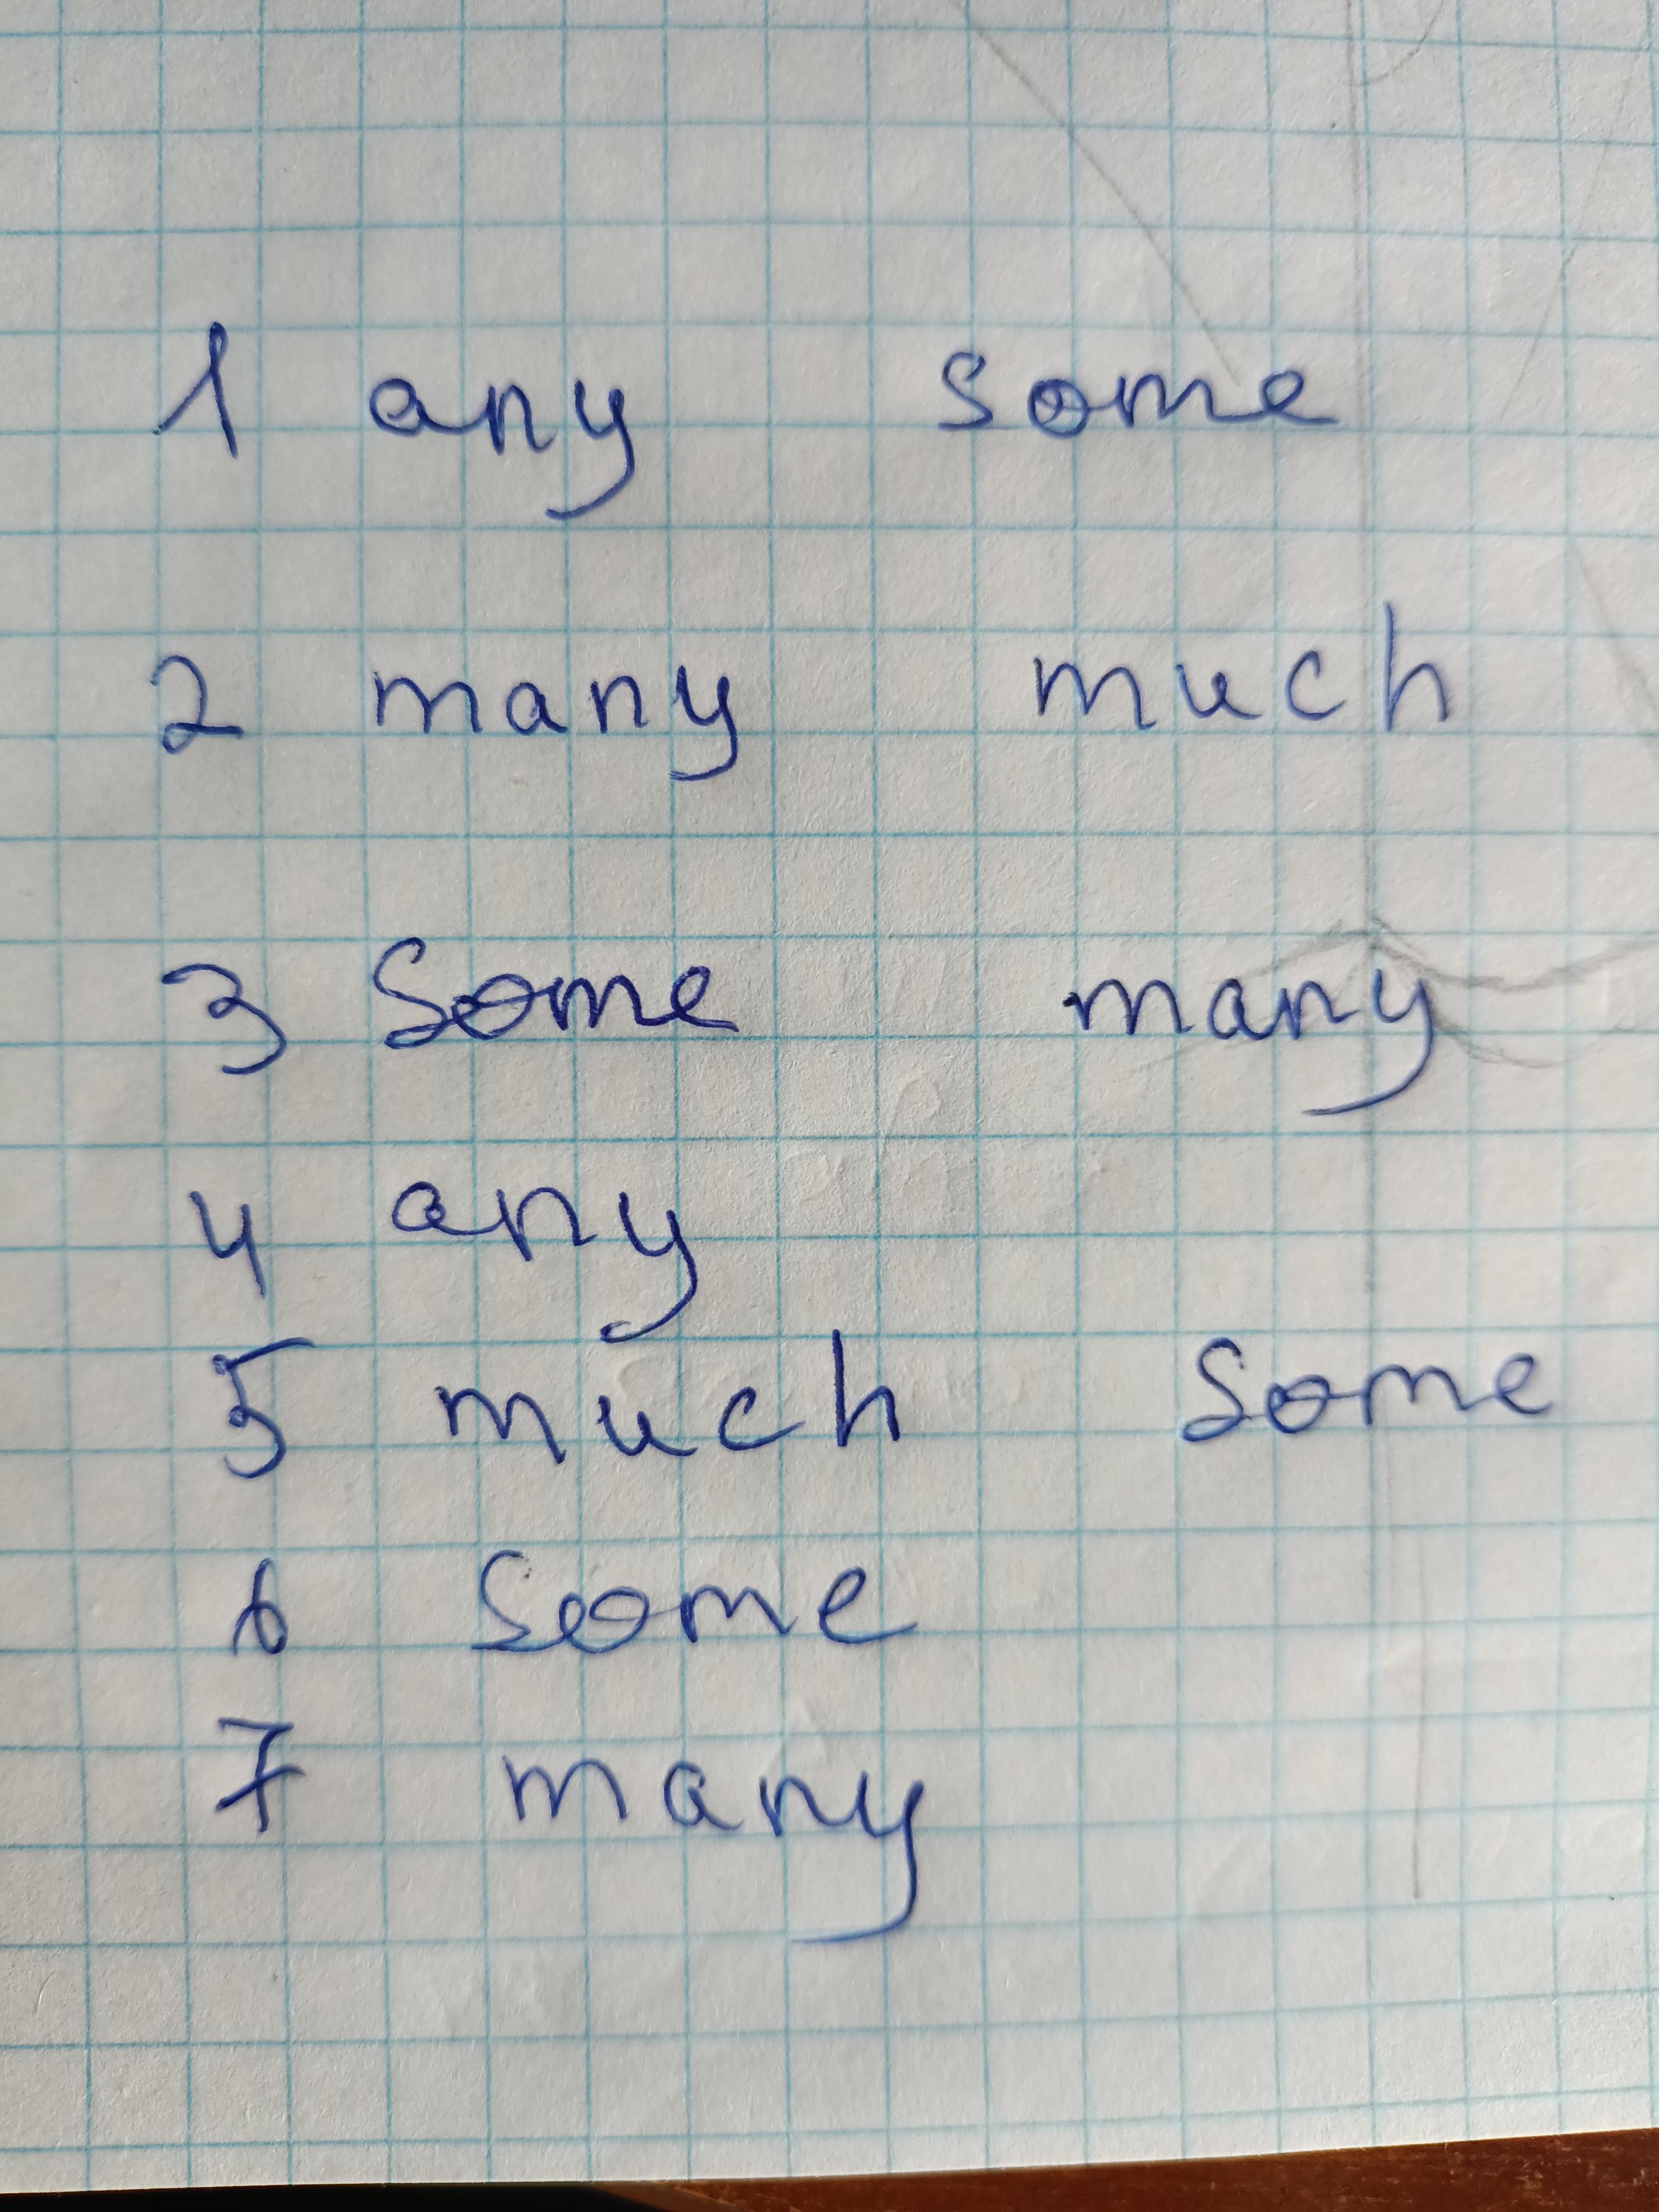 1 any some
2 many much
3 Some many
4 any
5 much Some
6 Some
7 many